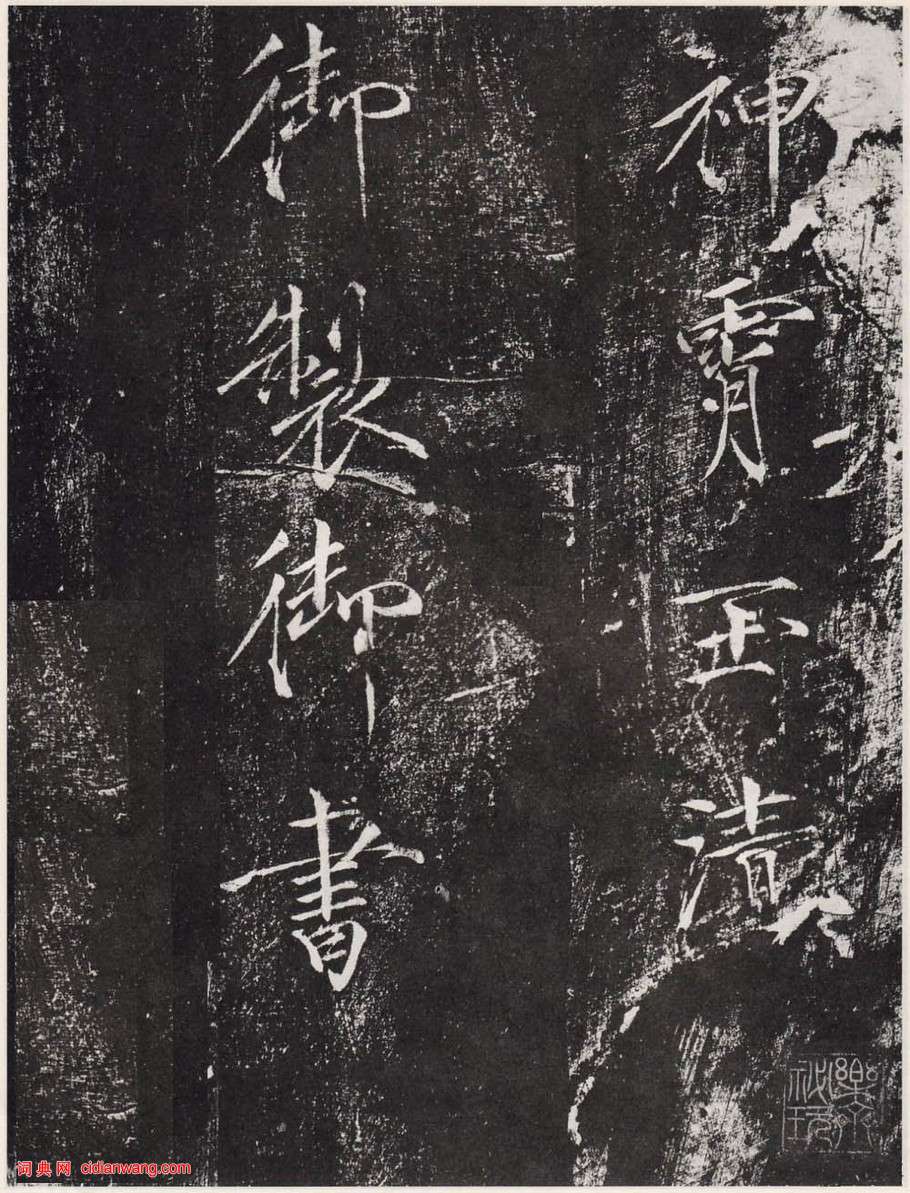 神霄玉清
御製御書
词典网 cidianwang.com